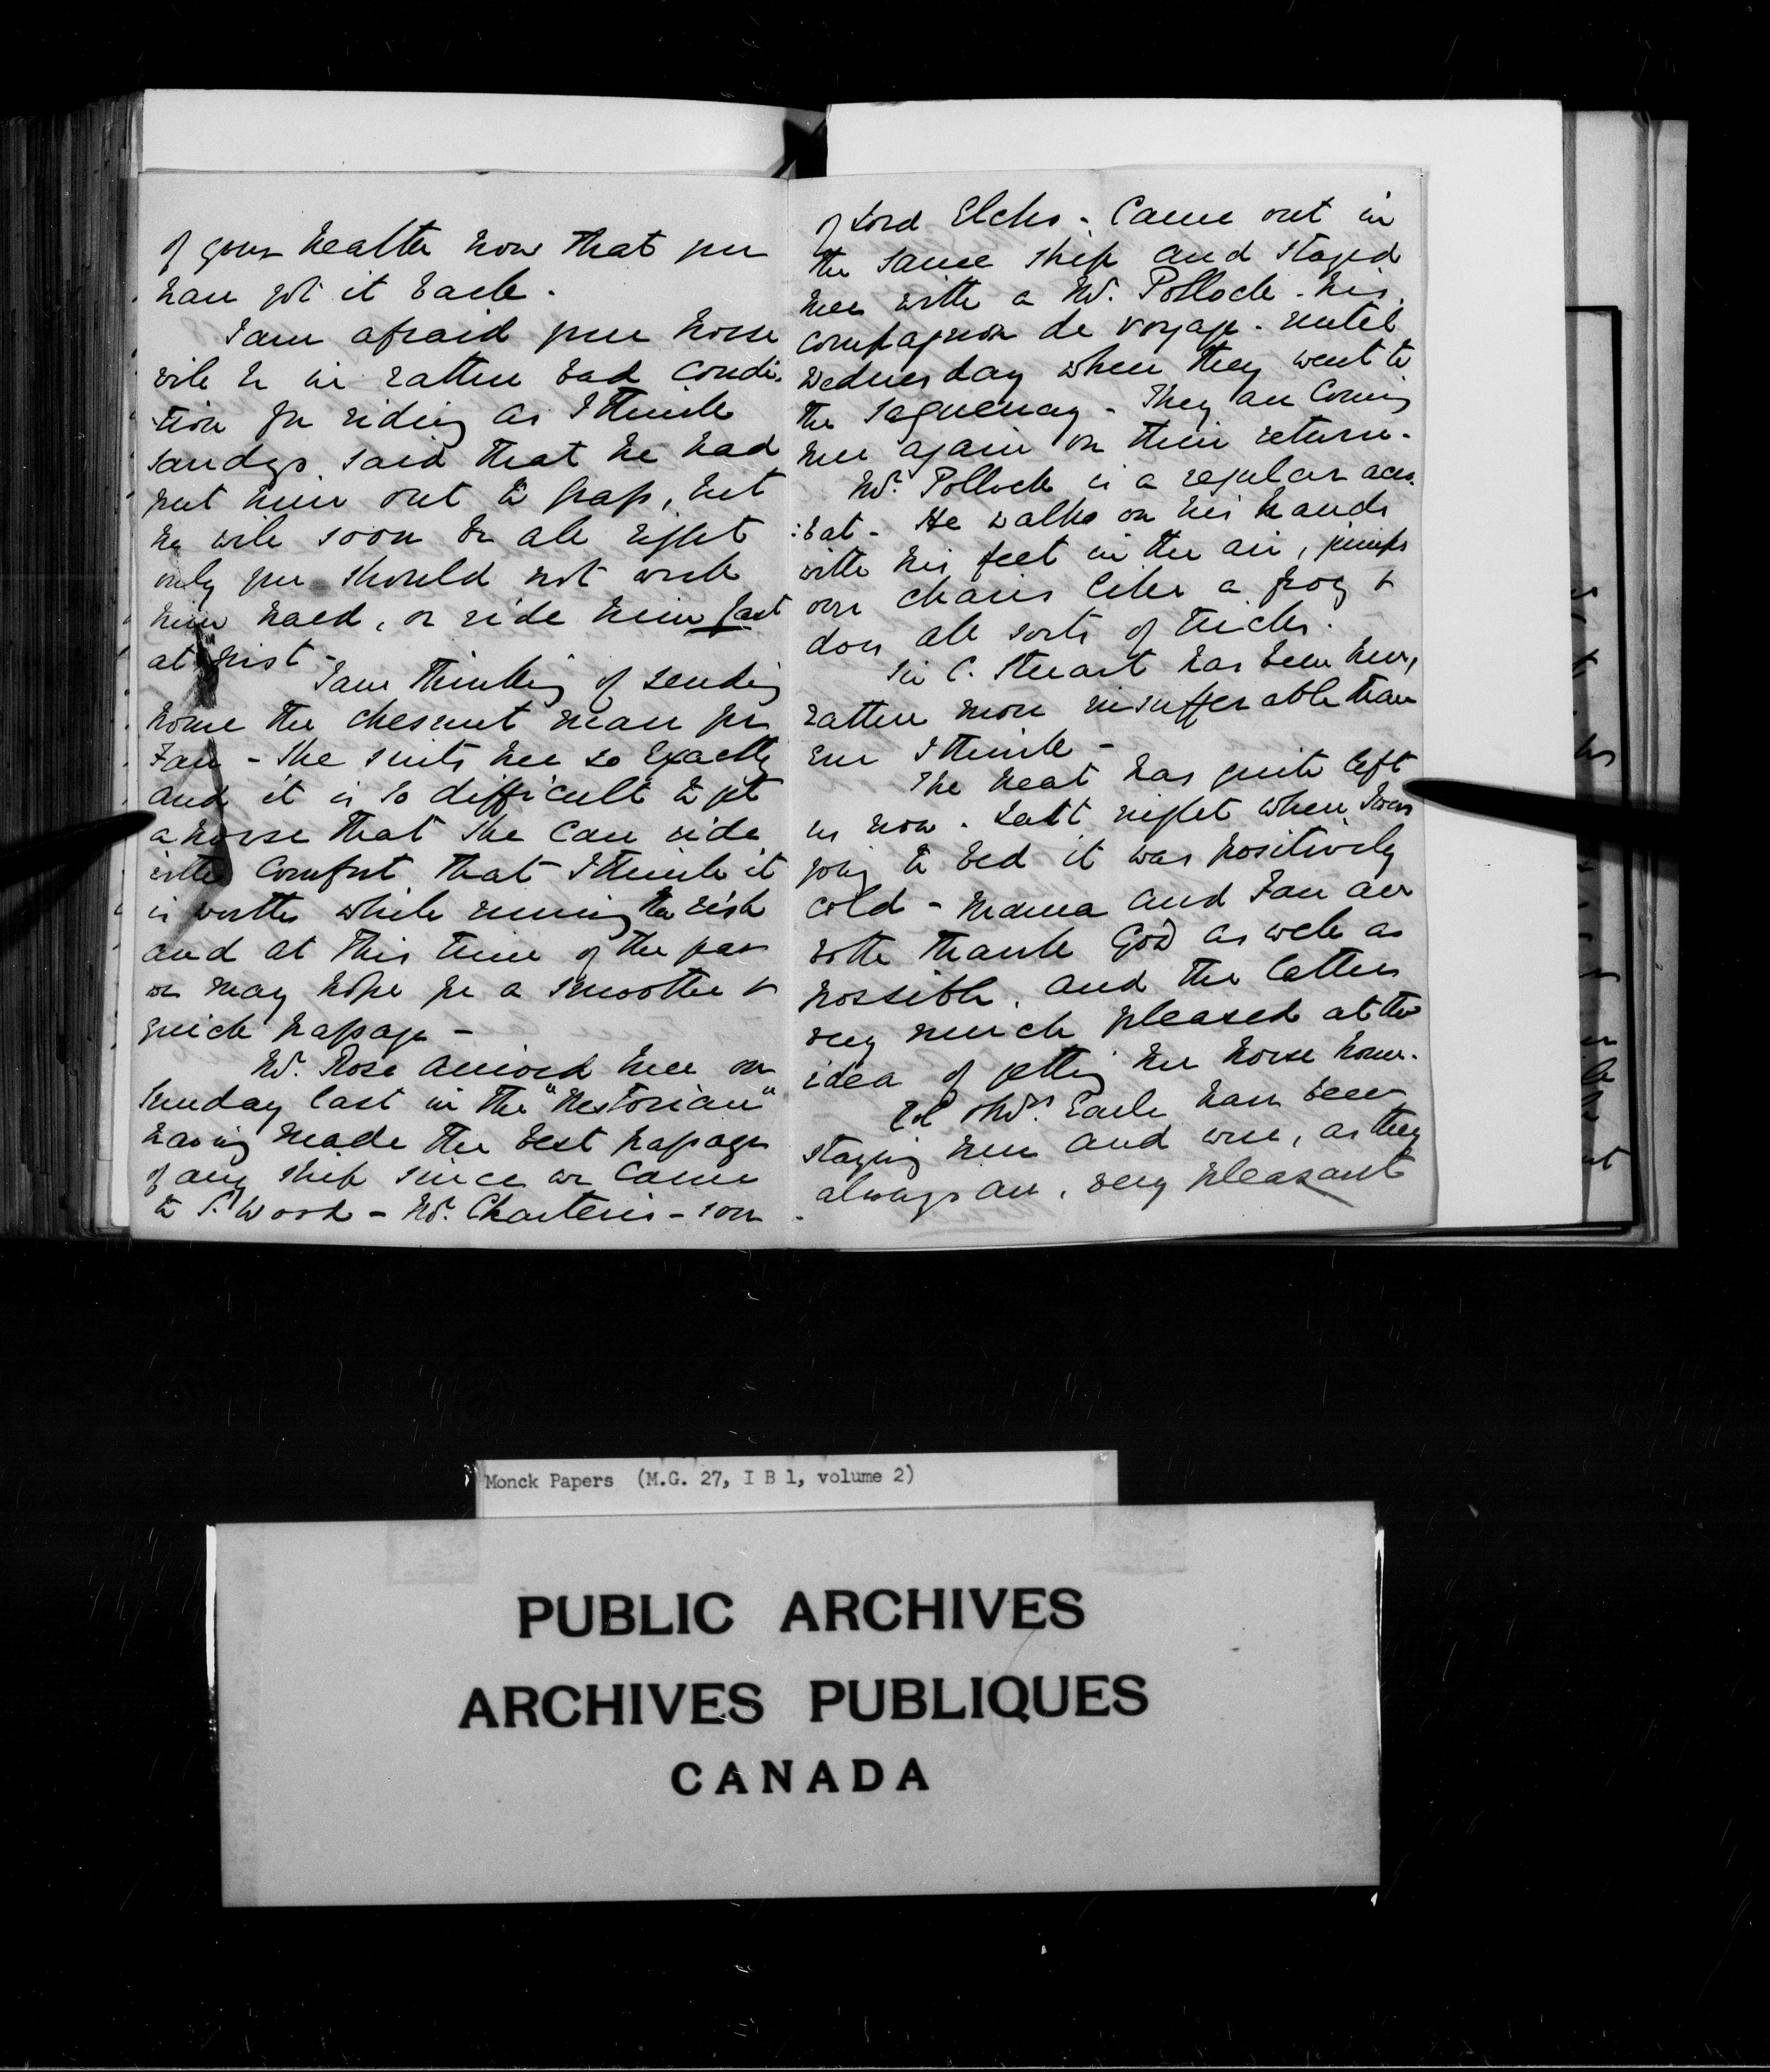 of your health now that you
have got it back.
I am afraid your horse
will be in rather bad condi-
tion for riding as I think
Sandys said that he had
put him out to grass, but
he will soon be all right
only you should not work
him hard, or ride him fast
at first -
I am thinking of sending
home the chesnut mare for
Fan - She suits her so exactly
and it is so difficult to get
a horse that she can ride
with comfort that I think it
is worth while running the risk
and at this time of the year
we may hope for a smooth &
quick passage -
Mr. Rose arrived here on
Sunday last in the "Nestorian"
having made the best passage
of any ship since we came
to S. Wood - Mr. Charteris - son
of Lord Elcho - Came out in
the same ship and stayed
here with a Mr. Pollock - his
compagnon de voyage - until
Wednesday when they went to
the Saguenay - They are coming
here again on their return.
Mr. Pollock is a regular acro
:bat - He walks on his hands
with his feet in the air, jumps
over chairs like a frog &
does all sorts of tricks.
Sir C. Stuart has been here,
rather more insufferable than
ever I think -
The heat has quite left
us now. Last night when I was
going to bed it was positively
cold - Mama and Fan are
both thank God as well as
possible, and the latter
very much pleased at the
idea of getting her horse home.
Col & Mrs. Earle have been
staying here and were, as they
always are, very pleasant
Monck Papers (M.G. 27, I B 1, volume 2)
PUBLIC ARCHIVES
ARCHIVES PUBLIQUES
CANADA